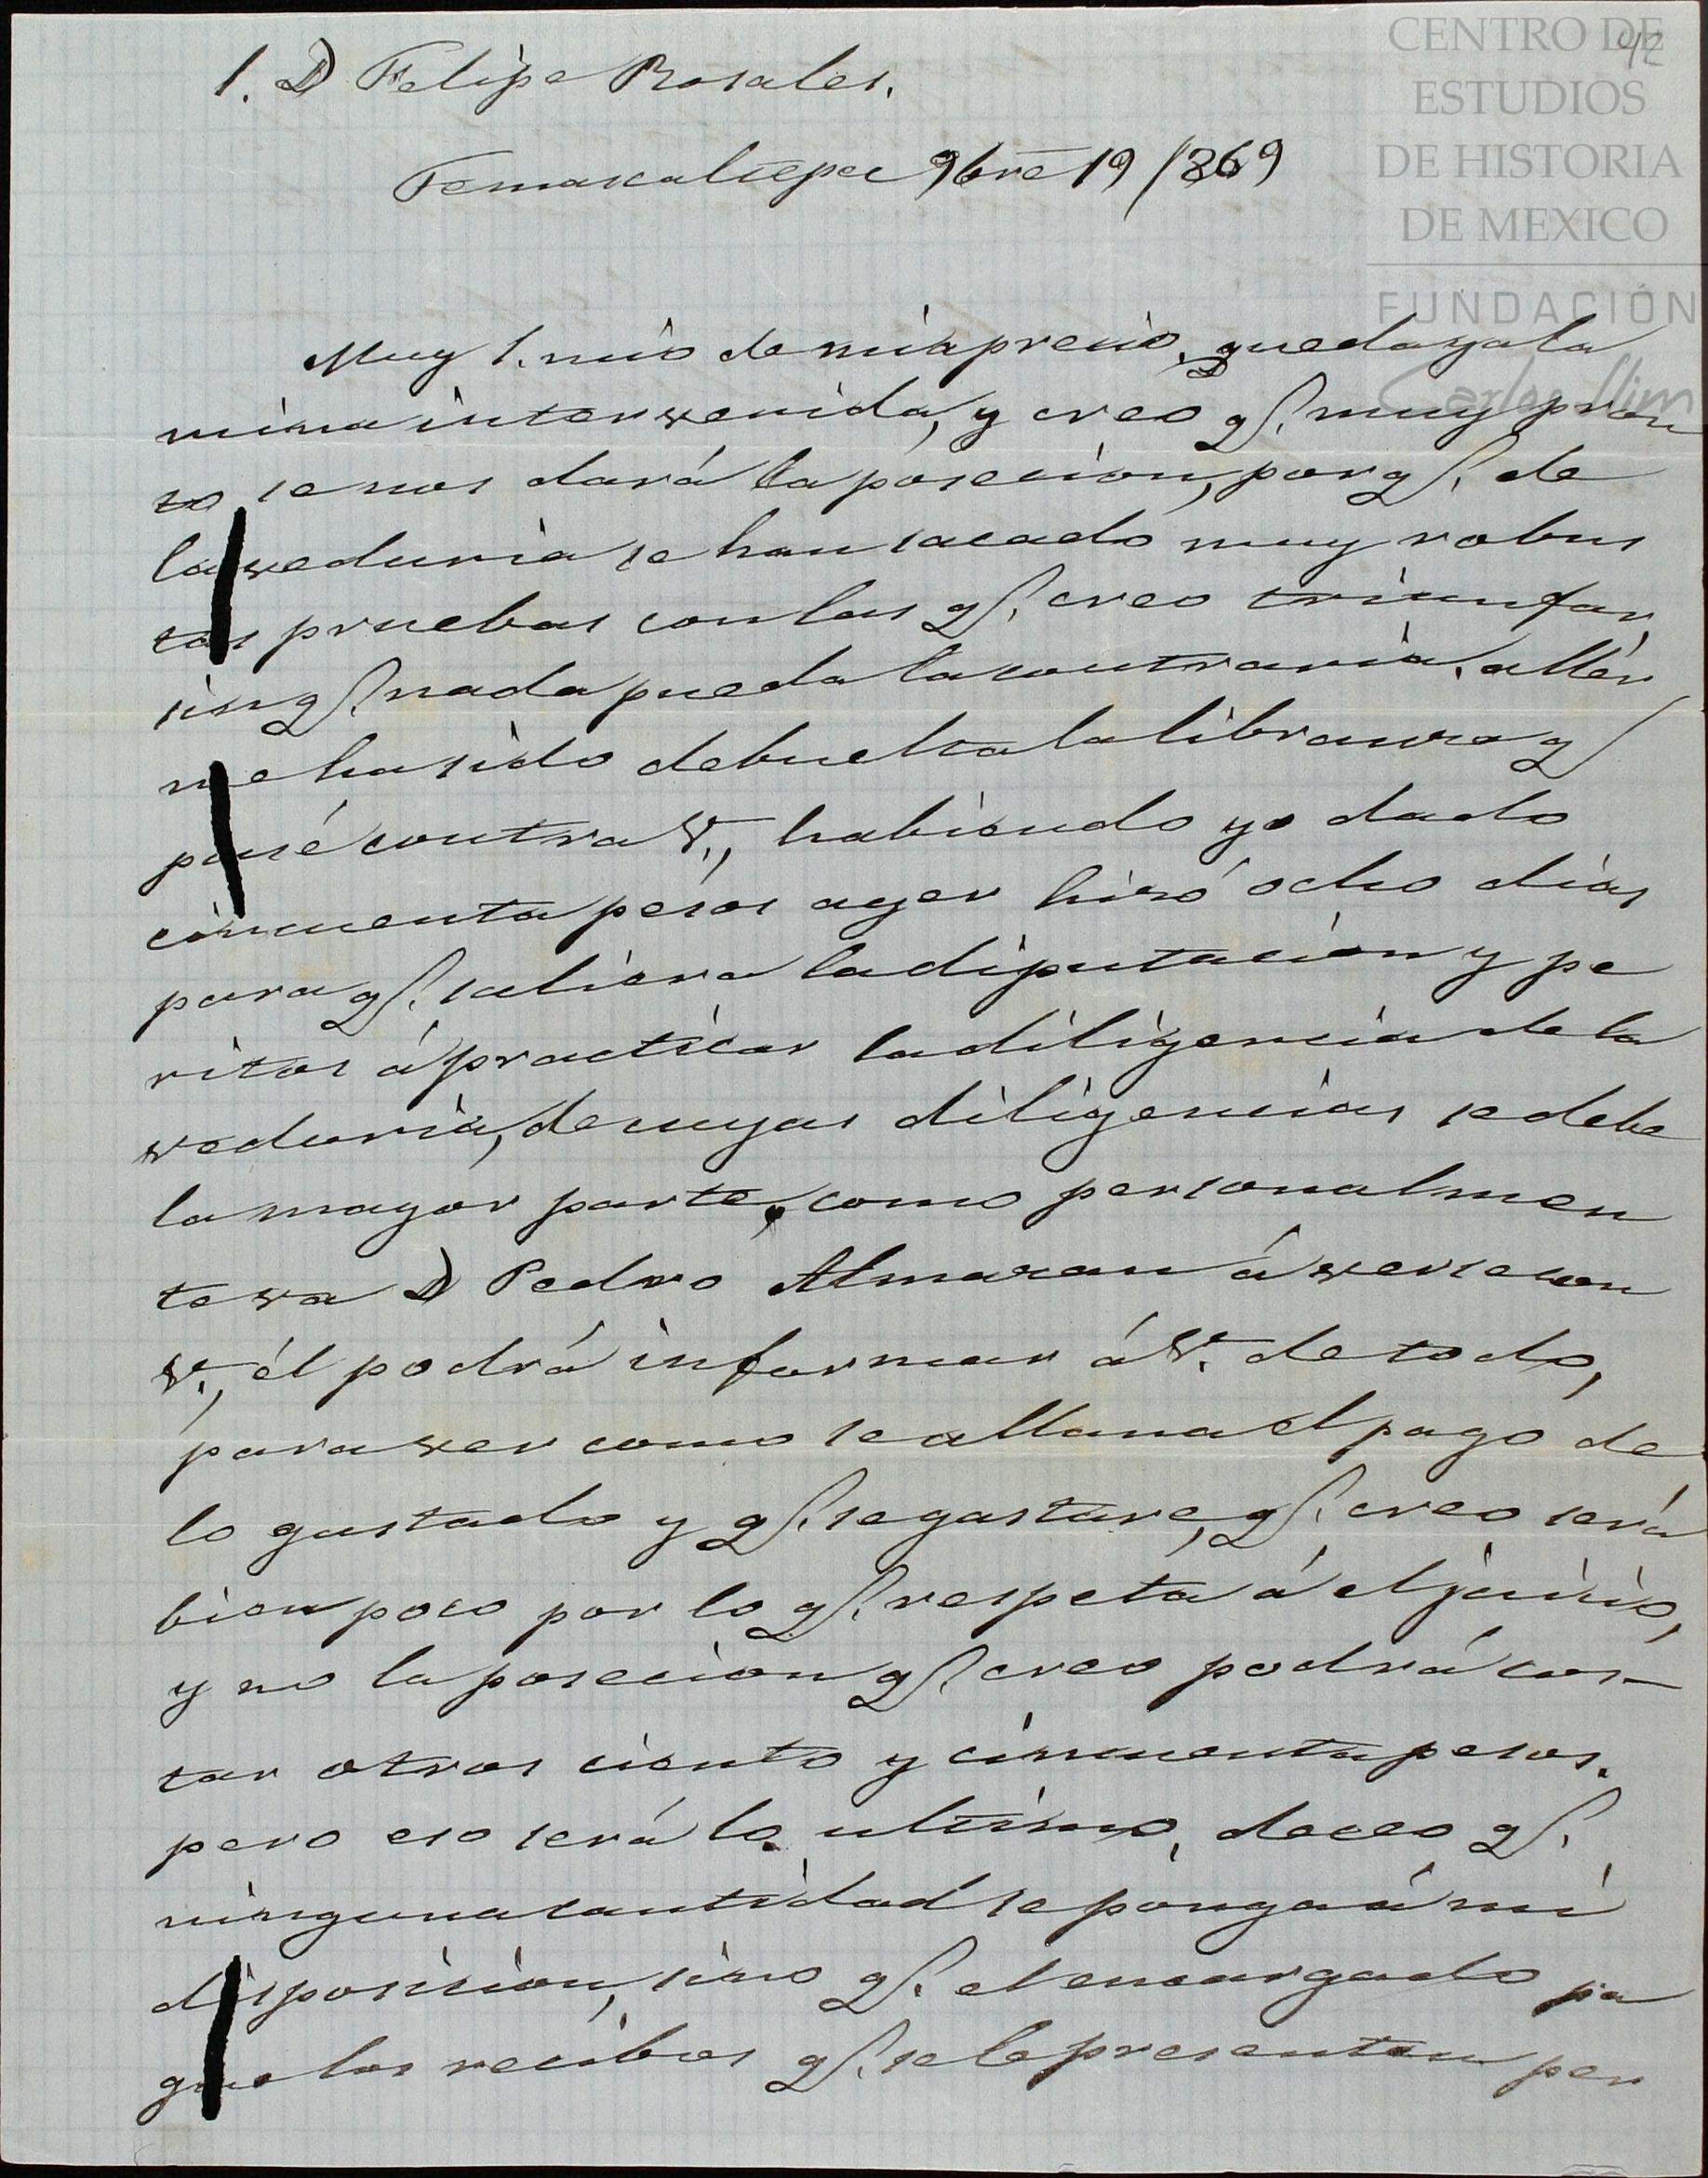 42
CENTRO DE
ESTUDIOS
DE HISTORIA
DE MEXICO
FUNDACIÓN
Carlos Slim
S. D Felipe Rosales.
Temascaltepec 9bre 19/869
Muy S. mio de mi aprecio, queda ya la
mina intervenida, y creo q. muy pron
to se nos dará la posecion, porq. de
la veduria se han sacado muy robus
tas pruebas con las q. creo triunfar,
sin q. nada pueda la contraria. allér
me ha sido debuelta la libranza q
puse contra V., habiendo yo dado
cincuenta pesos ayer hizó ocho dias
para q. saliera la diputacion y pe
ritos á practicar la diligencia de la
veduria, de cuyas diligencias se debe
la mayor parte, como personalmen
te va D Pedro Almazan á verse con
V., él podrá informar á V. de todo,
para ver como se allana el pago de
lo gastado y q. se gastare, q. creo será
bien poco por lo q. respeta á el juicio,
y no la posecion q. creo podrá cos-
tar otros ciento y cincuenta pesos.
pero eso será lo ultimo, deceo q.
ninguna cantidad se ponga á mi
disposicion, sino q. el encargado pa
gue los recibos q. se le presenten por